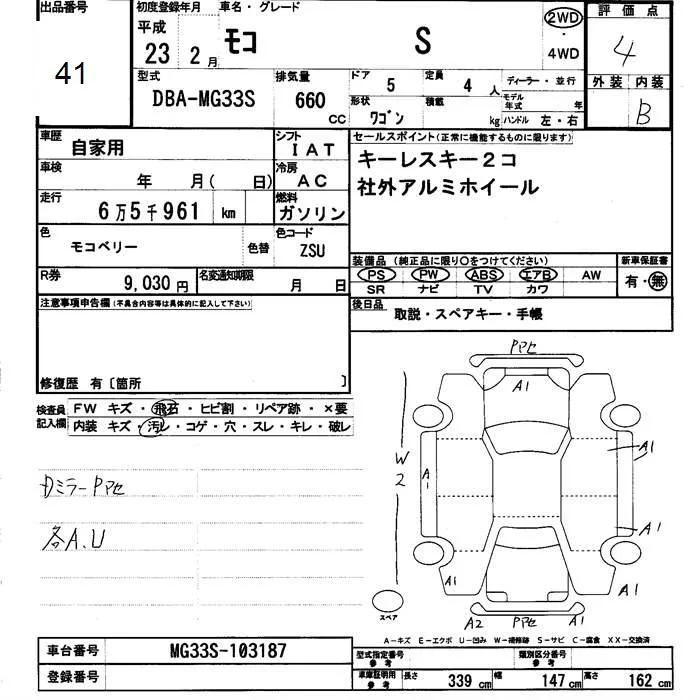 出品番号
41
初度登録年月
平成
23 2月
車名・グレード
モコ S
2WD
・
4WD
評価点
4
外装 内装
B
型式
DBA-MG33S
排気量
660
CC
ドア 5
定員 4人
形状 ワゴン
積載 kg
ディーラー・並行
モデル年式 年
ハンドル 左・右
車歴 自家用
シフト IAT
車検 年 月( 日)
冷房 AC
走行 6万5千961 km
燃料 ガソリン
色 モコベリー 色替
色コード ZSU
R券 9,030円
名変通知期限 月 日
セールスポイント(正常に機能するものに限ります)
キーレスキー2コ
社外アルミホイール
装備品 (純正品に限り○をつけてください)
PS PW ABS エアB AW
SR ナビ TV カワ
新車保証書
有・無
後日品 取説・スペアキー・手帳
注意事項申告欄(不具合内容等は具体的に記入して下さい)
修復歴 有〔箇所 〕
検査員記入欄
FW キズ・飛石・ヒビ割・リペア跡・×要
内装 キズ・汚レ・コゲ・穴・スレ・キレ・破レ
Dミラー Pアセ
各A.U
Pアセ
A1
W2
A1
A1
A1
A1
A1
A2 Pアセ A1
スペア
A-キズ E-エクボ U-凹み W-補修跡 S-サビ C-腐食 XX-交換済
車台番号 MG33S-103187
登録番号
型式指定番号 参考
類別区分番号 参考
車庫証明用 参考
長さ 339cm 幅 147cm 高さ 162cm